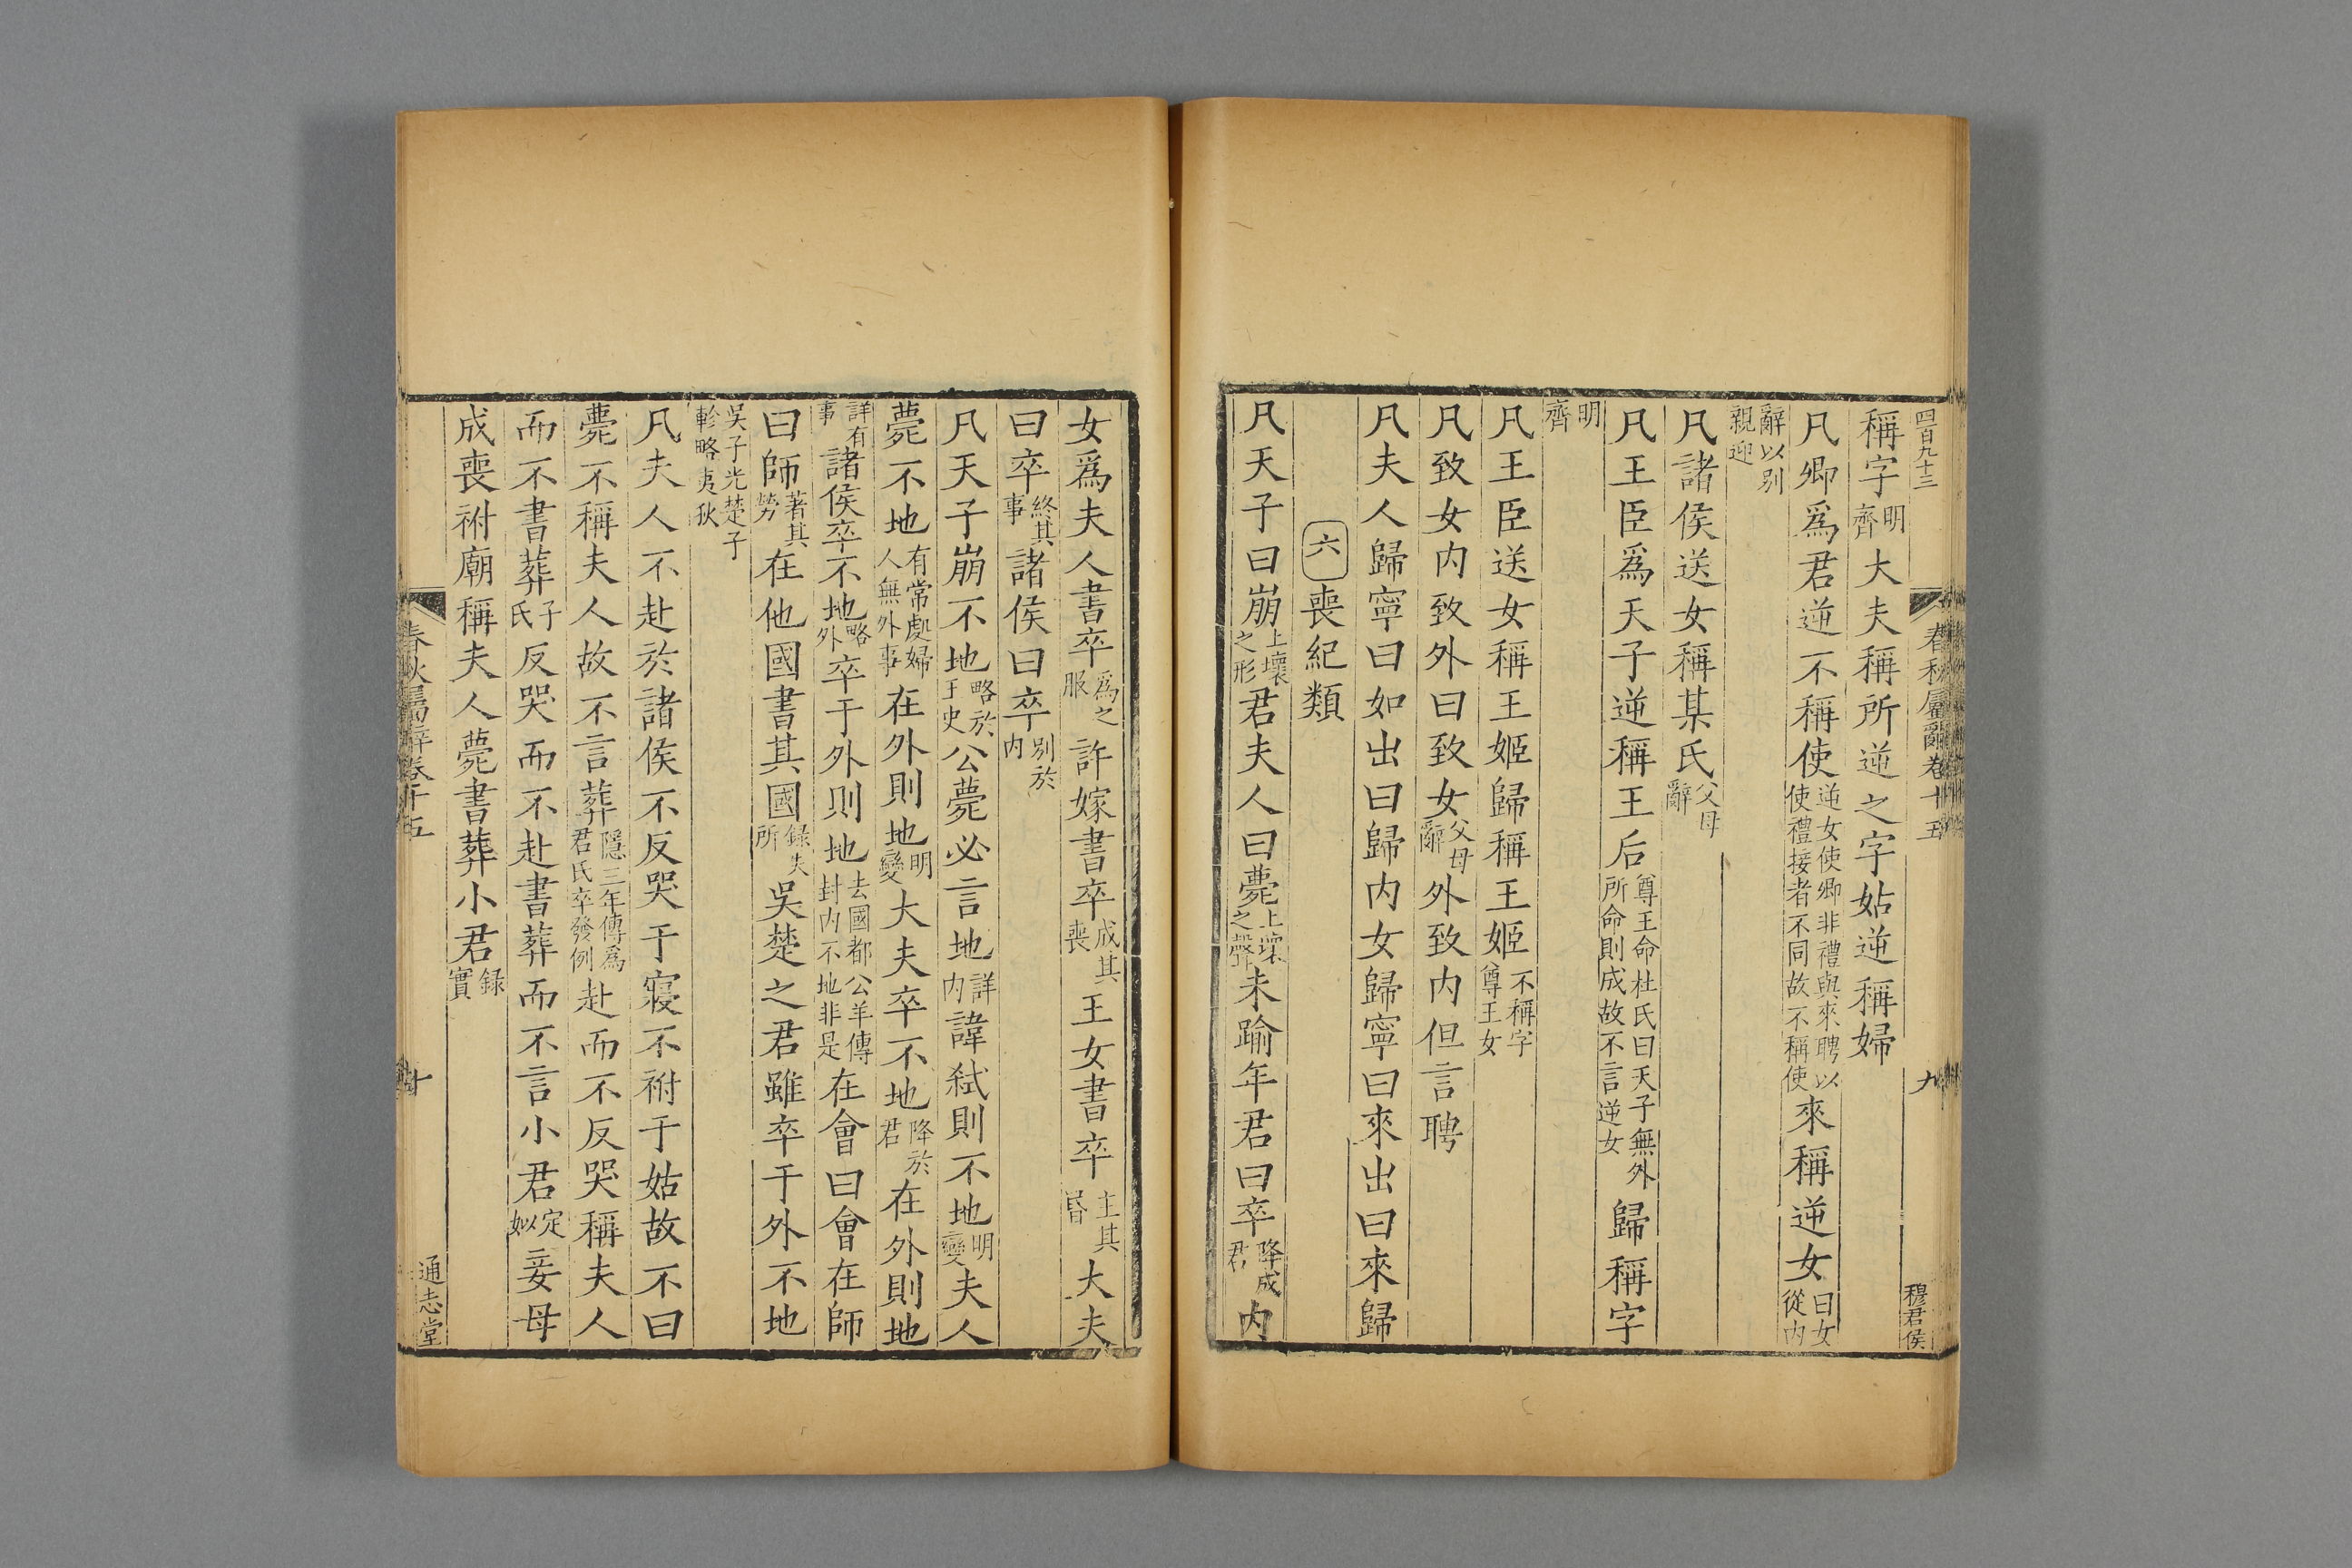 四百九十三
春秋屬辭卷十五
九
穆君侯
稱字明齊大夫稱所逆之字姑逆稱婦
凡卿爲君逆不稱使逆女使卿非禮與來聘以使禮接者不同故不稱使來稱逆女曰女從内
辭以别親迎
凡諸侯送女稱某氏父母辭
凡王臣爲天子逆稱王后尊王命杜氏曰天子無外所命則成故不言逆女歸稱字
明齊
凡王臣送女稱王姬歸稱王姬不稱字尊王女
凡致女内致外曰致女父母辭外致内但言聘
凡夫人歸寧曰如出曰歸内女歸寧曰來出曰來歸
六喪紀類
凡天子曰崩上壞之形君夫人曰薨上壞之聲未踰年君曰卒降成君内
女爲夫人書卒爲之服許嫁書卒成其喪王女書卒主其昏大夫
曰卒終其事諸侯曰卒别於内
凡天子崩不地略於王史公薨必言地詳内諱弑則不地明變夫人
薨不地有常處婦人無外事在外則地明變大夫卒不地降於君在外則地
詳有事諸侯卒不地略外卒于外則地去國都公羊傳封内不地非是在會曰會在師
曰師著其勞在他國書其國録失所吳楚之君雖卒于外不地
吳子光楚子軫略夷狄
凡夫人不赴於諸侯不反哭于寢不祔于姑故不曰
薨不稱夫人故不言葬隱三年傳爲君氏卒發例赴而不反哭稱夫人
而不書葬子氏反哭而不赴書葬而不言小君定姒妾母
成喪祔廟稱夫人薨書葬小君録實
春秋屬辭卷十五
十
通志堂